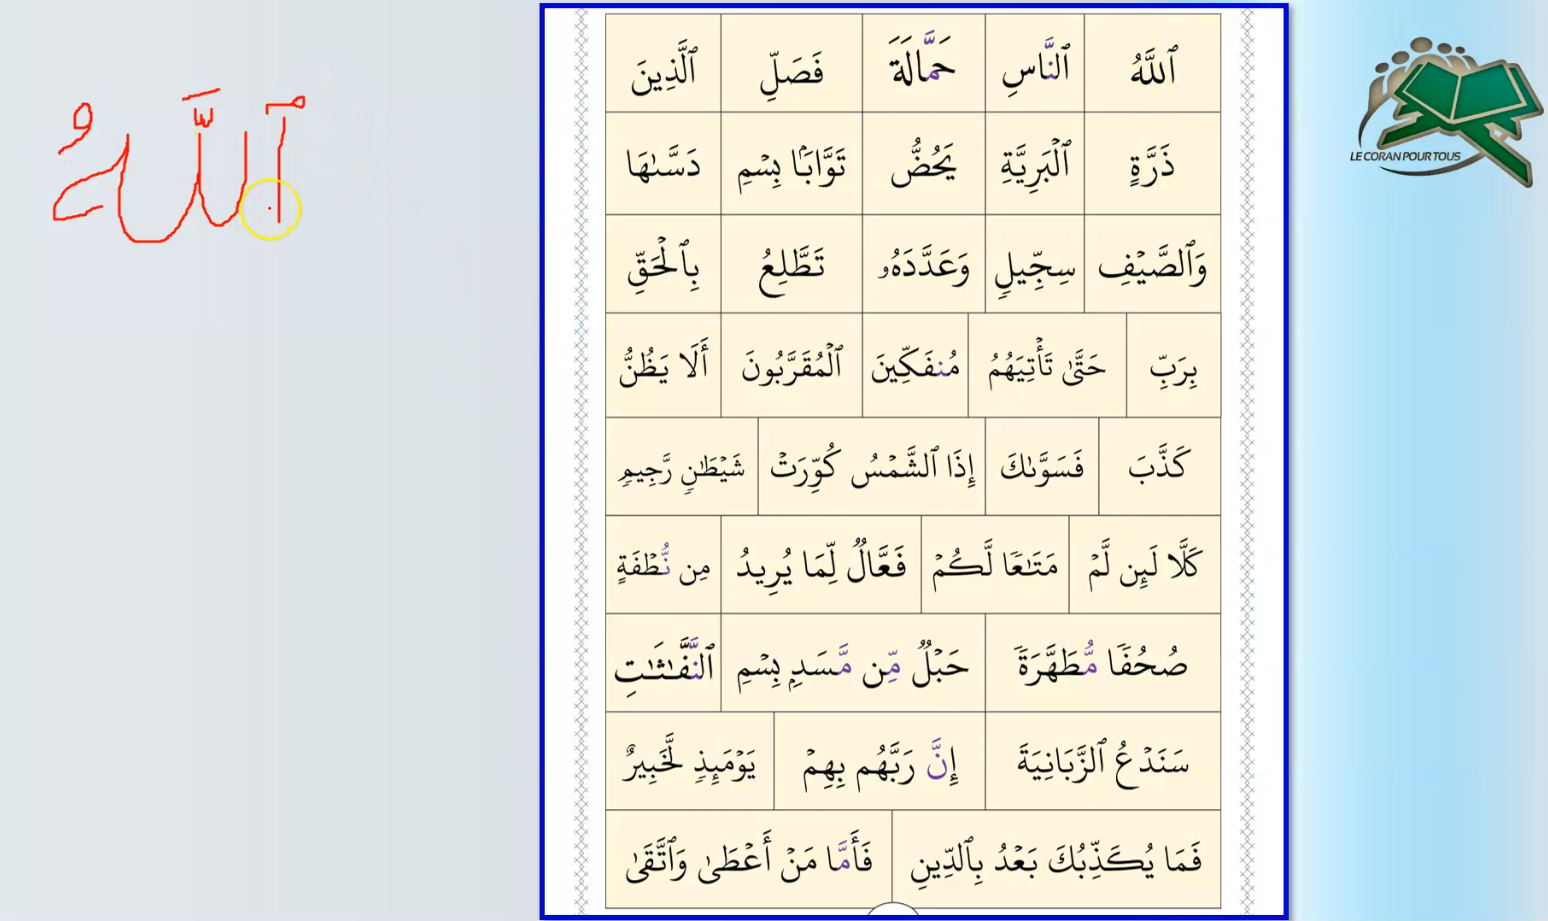 ٱللَّهُ
ٱللَّهُ ٱلنَّاسِ حَمَّالَةَ فَصَلِّ ٱلَّذِينَ
ذَرَّةٍ ٱلْبَرِيَّةِ يَحُضُّ تَوَّابَۢا بِسْمِ دَسَّىٰهَا
وَٱلصَّيْفِ سِجِّيلٍ وَعَدَّدَهُۥ تَطَّلِعُ بِٱلْحَقِّ
بِرَبِّ حَتَّىٰ تَأْتِيَهُمُ مُنفَكِّينَ ٱلْمُقَرَّبُونَ أَلَا يَظُنُّ
كَذَّبَ فَسَوَّىٰكَ إِذَا ٱلشَّمْسُ كُوِّرَتْ شَيْطَٰنٍ رَّجِيمٍ
كَلَّا لَئِن لَّمْ مَتَٰعًا لَّكُمْ فَعَّالٌ لِّمَا يُرِيدُ مِن نُّطْفَةٍ
صُحُفًا مُّطَهَّرَةً حَبْلٌ مِّن مَّسَدٍ بِسْمِ ٱلنَّفَّٰثَٰتِ
سَنَدْعُ ٱلزَّبَانِيَةَ إِنَّ رَبَّهُم بِهِمْ يَوْمَئِذٍ لَّخَبِيرٌ
فَمَا يُكَذِّبُكَ بَعْدُ بِٱلدِّينِ فَأَمَّا مَنْ أَعْطَىٰ وَٱتَّقَىٰ
LE CORAN POUR TOUS